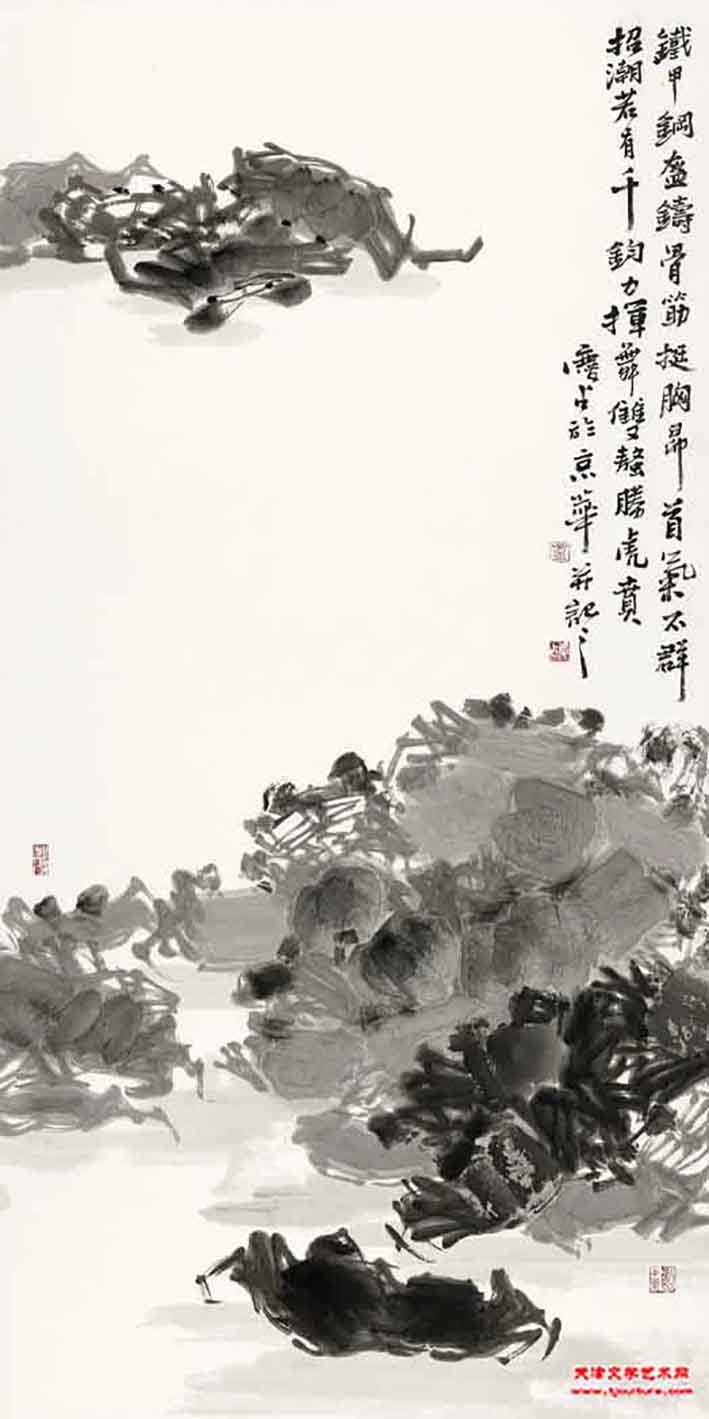 鐵甲鋼盔鑄骨筋挺胸昂首氣不群
招潮若有千鈞力揮舞雙螯勝虎賁
占於京華并記之
天津文学艺术网
www.tjculture.com